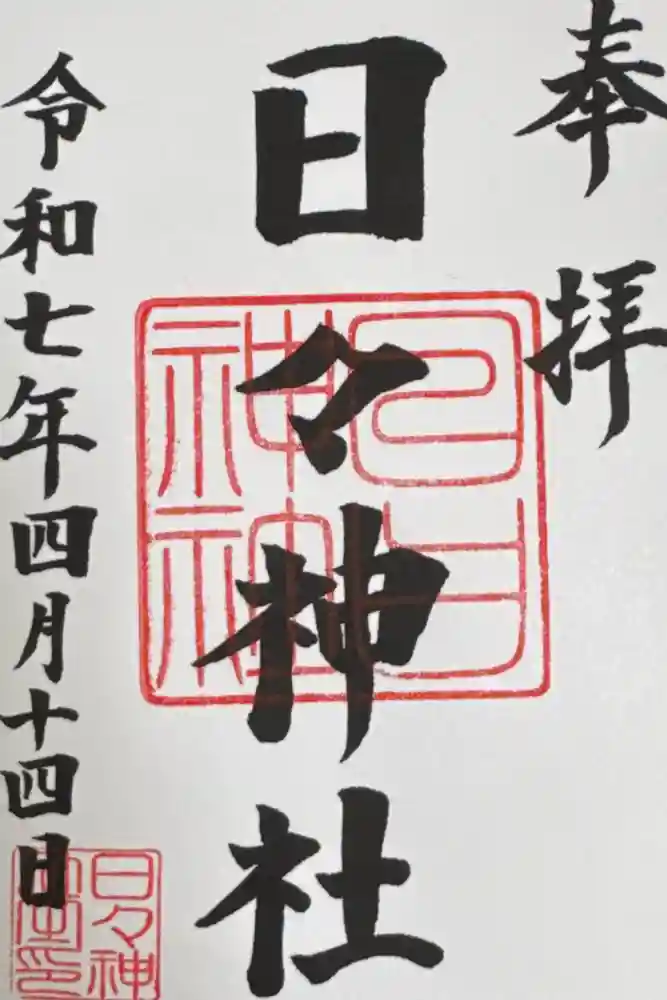 奉拝
日々神社
令和七年四月十四日
日々神